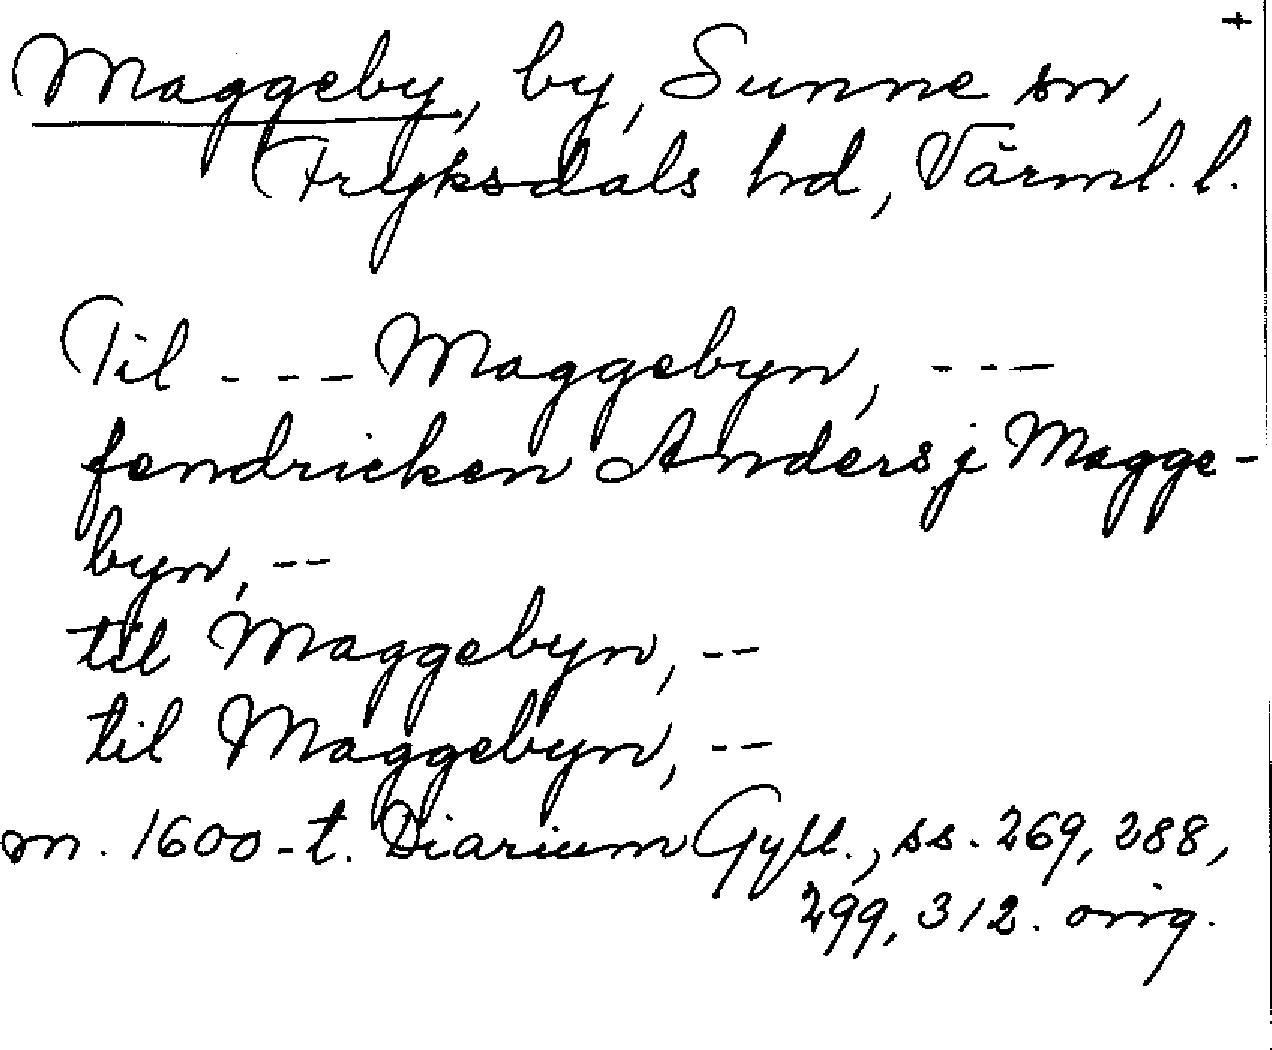 +
Maggeby, by, Sunne sn,
Fryksdals hd, Värml. l.
Til - - - Maggebyn, - - -
fendricken Anders j Magge-
byn, - -
til Maggebyn, - -
til Maggebyn, - -
m. 1600-t. Diarium Gyll., ss. 269, 288,
299, 312. orig.